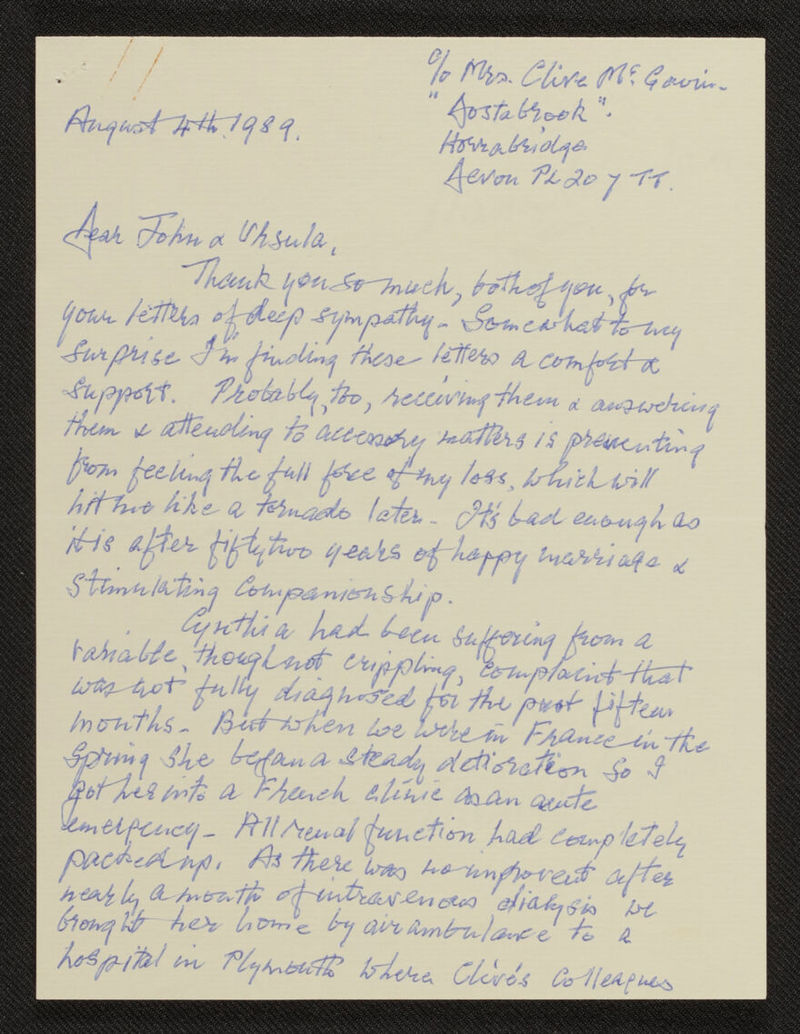 c/o Mrs. Clive Mc Gavin.
August 4th. 1989.
"Jostabrook".
Horrabridge
Devon PL20 7TT.
Dear John & Ursula,
Thank you so much, both of you, for
your letters of deep sympathy. Somewhat to my
surprise I'm finding these letters a comfort &
support. Probably, too, receiving them & answering
them & attending to accessory matters is preventing
from feeling the full force of my loss, which will
hit me like a tornado later. It's bad enough as
it is after fiftytwo years of happy marriage &
stimulating companionship.
Cynthia had been suffering from a
variable, though not crippling, complaint that
was not fully diagnosed for the past fifteen
months. But when we were in France in the
Spring she began a steady detioration so I
got her into a French clinic as an acute
emergency. All renal function had completely
packed up. As there was no improvent after
nearly a month of intravenous dialysis we
brought her home by air ambulance to a
hospital in Plymouth where Clive's colleagues